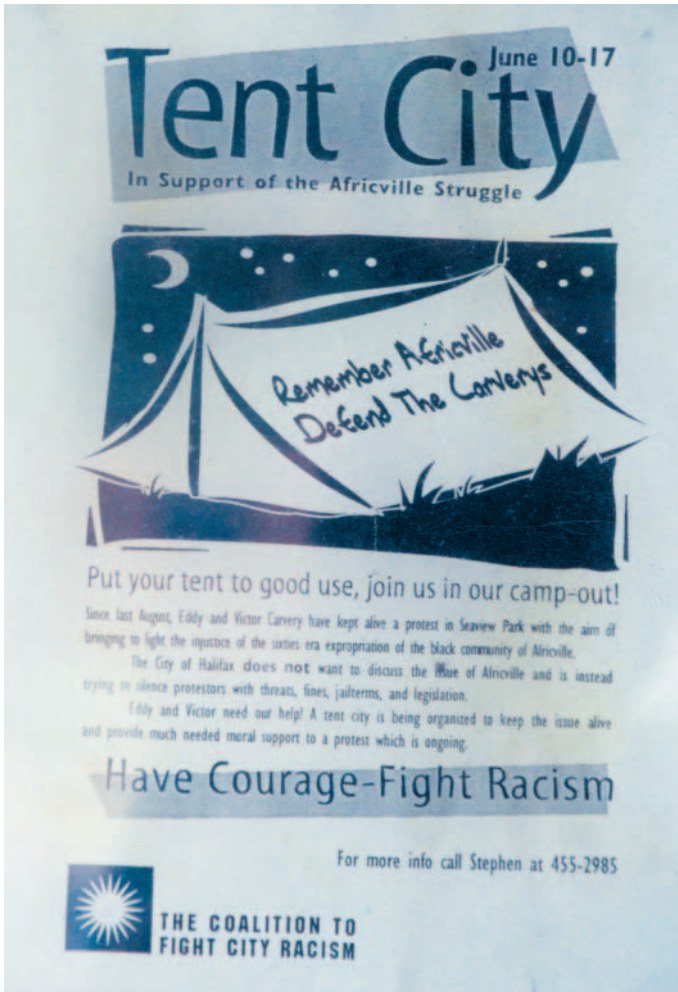 June 10-17
Tent City
In Support of the Africville Struggle
Remember Africville
Defend The Carverys
Put your tent to good use, join us in our camp-out!
Since last August, Eddy and Victor Carvery have kept alive a protest in Seaview Park with the aim of
bringing to light the injustice of the sixties era expropriation of the black community of Africville.
The City of Halifax does not want to discuss the issue of Africville and is instead
trying to silence protestors with threats, fines, jailterms, and legislation.
Eddy and Victor need our help! A tent city is being organized to keep the issue alive
and provide much needed moral support to a protest which is ongoing.
Have Courage-Fight Racism
For more info call Stephen at 455-2985
THE COALITION TO
FIGHT CITY RACISM